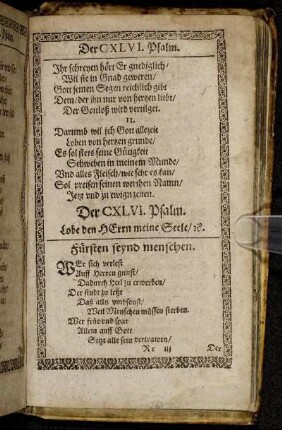 Der CXLVI. Psalm.
Ihr schreyen hört Er gnediglich/
Wil sie in Gnad geweren/
Gott seinen Segen reichlich gibt
Dem/ der ihn nur von hertzen liebt/
Der Gottloß wird vertilget.
13.
Darumb wil ich Gott allezeit
Loben von hertzen grunde/
Es sol stets seine Gütigkeit
Schweben in meinem Munde/
Vnd alles Fleisch/ wie sehr es kan/
Sol preisen seinen werthen Namn/
Jetzt vnd zu ewign zeiten.
Der CXLVI. Psalm.
Lobe den HErrn meine Seele/ ꝛc.
Fürsten seynd menschen.
WEr sich verlest
Auff Herren gunst/
Dadurch Heil zu erwerben/
Der findt zu letzt
Daß alls vmbsonst/
Weil Menschen müssen sterben.
Wer früe vnd spat
Allein auff Gott
Setzt alle sein vertrawen/
Rr iij
Der